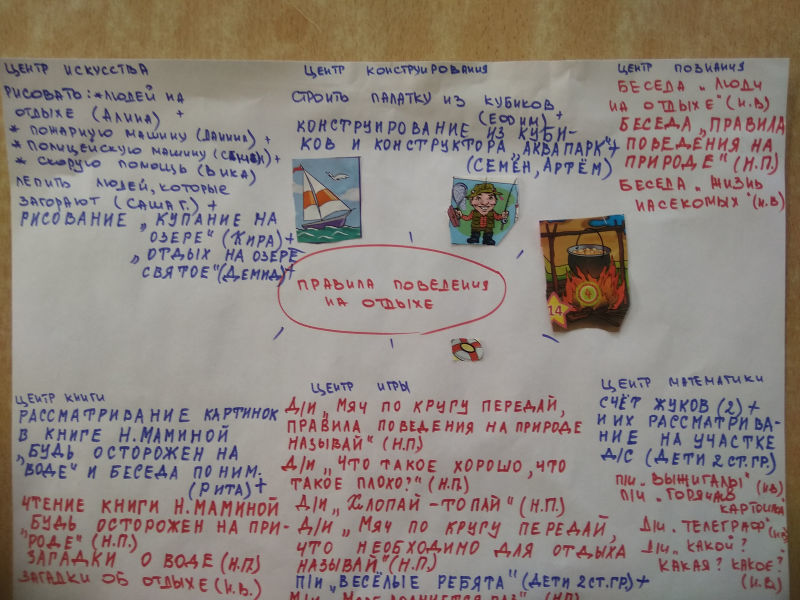 ЦЕНТР ИСКУССТВА
РИСОВАТЬ: *ЛЮДЕЙ НА
ОТДЫХЕ (АЛИНА) +
* ПОЖАРНУЮ МАШИНУ (ДАНИИЛ) +
* ПОЛИЦЕЙСКУЮ МАШИНУ (СЕМЁН) +
* СКОРУЮ ПОМОЩЬ (ВИКА)
ЛЕПИТЬ ЛЮДЕЙ, КОТОРЫЕ
ЗАГОРАЮТ (САША Г.) +
РИСОВАНИЕ „КУПАНИЕ НА
ОЗЕРЕ" (КИРА) +
„ОТДЫХ НА ОЗЕРЕ
СВЯТОЕ" (ДЕМИД) +
ЦЕНТР КОНСТРУИРОВАНИЯ
СТРОИТЬ ПАЛАТКУ ИЗ КУБИКОВ
(ЕФИМ) +
КОНСТРУИРОВАНИЕ ИЗ КУБИ-
КОВ И КОНСТРУКТОРА „АКВАПАРК" +
(СЕМЁН, АРТЁМ)
ЦЕНТР ПОЗНАНИЯ
БЕСЕДА „ЛЮДИ
НА ОТДЫХЕ" (И.В)
БЕСЕДА „ПРАВИЛА
ПОВЕДЕНИЯ НА
ПРИРОДЕ" (Н.П)
БЕСЕДА „ЖИЗНЬ
НАСЕКОМЫХ" (И.В)
ПРАВИЛА ПОВЕДЕНИЯ
НА ОТДЫХЕ
4
14
ЦЕНТР КНИГИ
РАССМАТРИВАНИЕ КАРТИНОК
В КНИГЕ Н.МАМИНОЙ
„БУДЬ ОСТОРОЖЕН НА
ВОДЕ" И БЕСЕДА ПО НИМ.
(РИТА) +
ЧТЕНИЕ КНИГИ Н.МАМИНОЙ
„БУДЬ ОСТОРОЖЕН НА ПРИ-
РОДЕ" (Н.П.)
ЗАГАДКИ О ВОДЕ (Н.П)
ЗАГАДКИ ОБ ОТДЫХЕ (И.В.)
ЦЕНТР ИГРЫ
Д/И „МЯЧ ПО КРУГУ ПЕРЕДАЙ,
ПРАВИЛА ПОВЕДЕНИЯ НА ПРИРОДЕ
НАЗЫВАЙ" (Н.П)
Д/И „ЧТО ТАКОЕ ХОРОШО, ЧТО
ТАКОЕ ПЛОХО?" (Н.П)
Д/И „ХЛОПАЙ - ТОПАЙ" (Н.П)
Д/И „МЯЧ ПО КРУГУ ПЕРЕДАЙ,
ЧТО НЕОБХОДИМО ДЛЯ ОТДЫХА
НАЗЫВАЙ" (Н.П)
П/И „ВЕСЁЛЫЕ РЕБЯТА" (ДЕТИ 2СТ.ГР) +
ЦЕНТР МАТЕМАТИКИ
СЧЁТ ЖУКОВ (2) +
И ИХ РАССМАТРИВА-
НИЕ НА УЧАСТКЕ
Д/С (ДЕТИ 2 СТ.ГР.)
П/И „ВЫЖИГАЛЫ" (И.В)
П/И „ГОРЯЧАЯ
КАРТОШКА"
Д/И „ТЕЛЕГРАФ" (И.В)
Д/И „КАКОЙ?
КАКАЯ? КАКОЕ?"
(И.В)